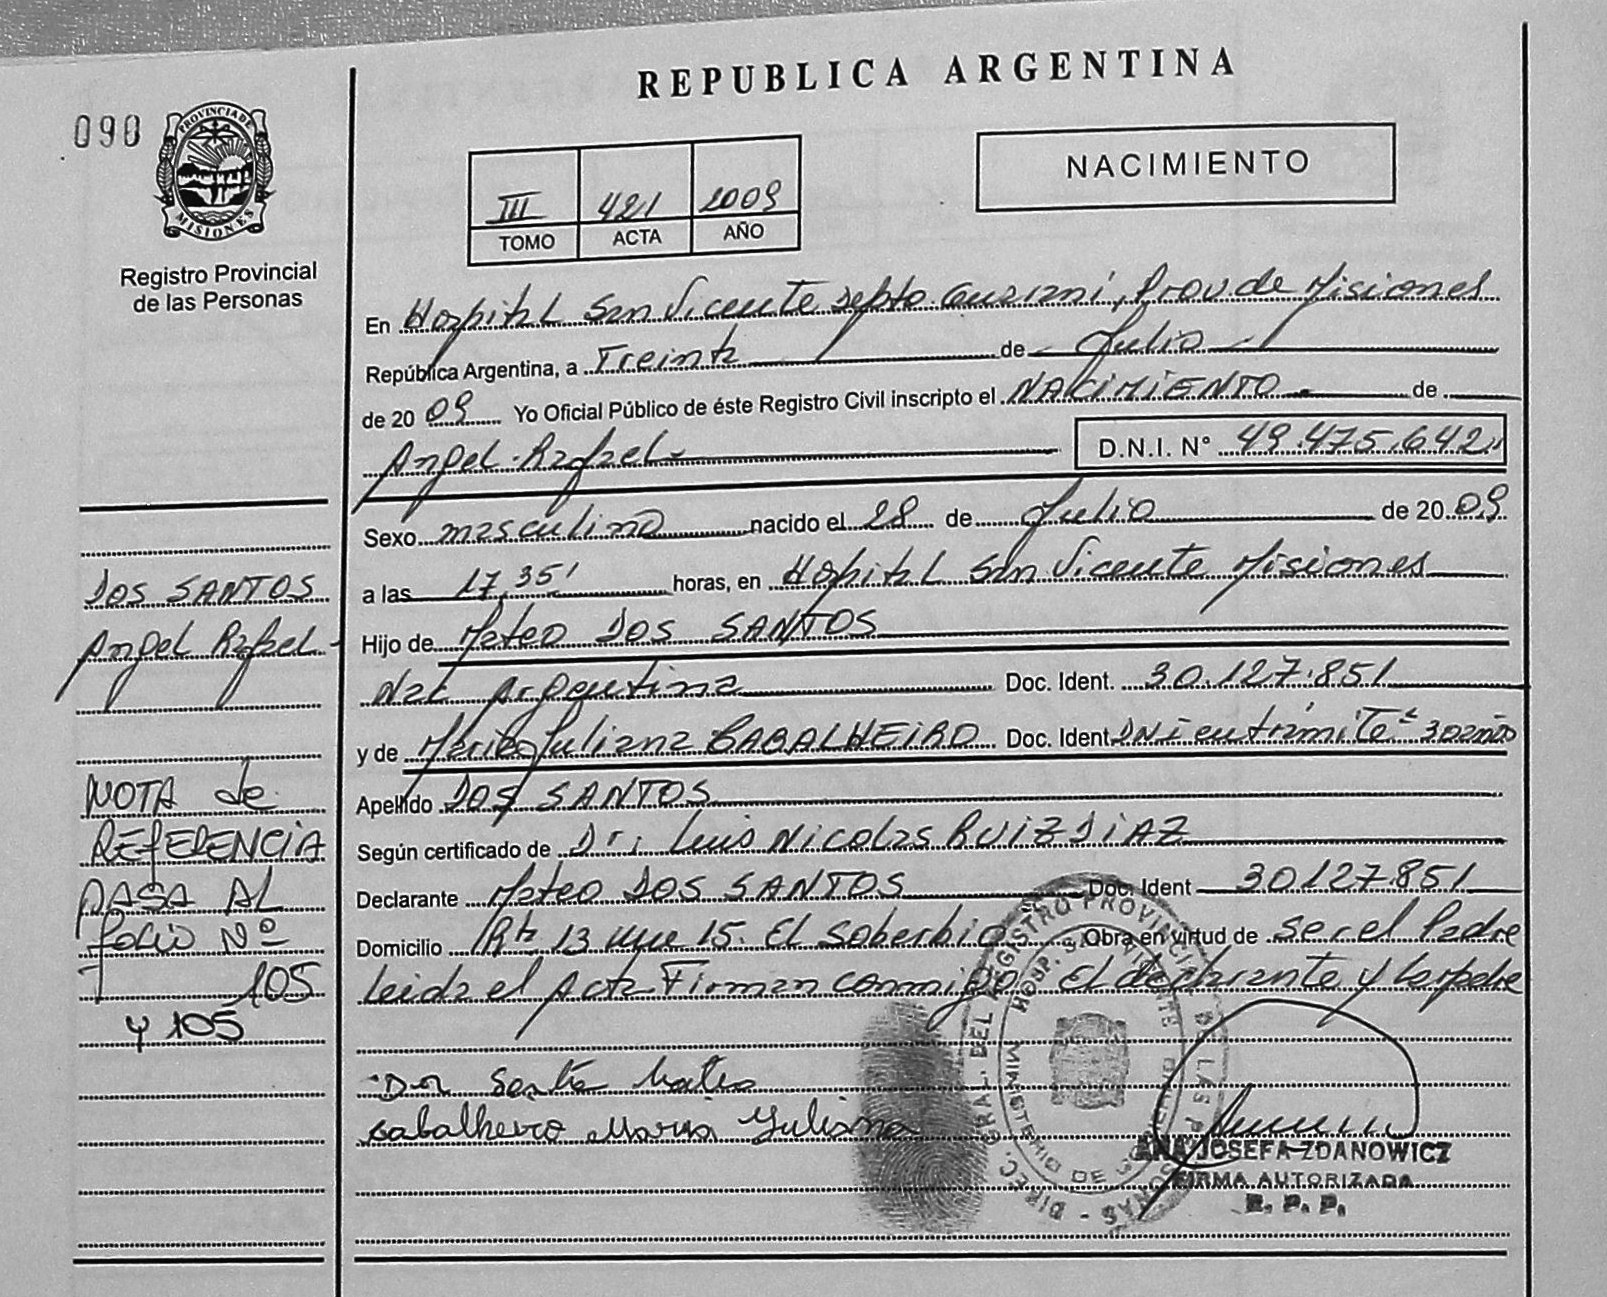 REPUBLICA ARGENTINA
090
PROVINCIA DE
MISIONES
Registro Provincial
de las Personas
III 421 2009
TOMO ACTA AÑO
NACIMIENTO
En Hospital San Vicente Depto Guarani, Prov de Misiones
República Argentina, a Treinta de Julio
de 20 09 Yo Oficial Público de éste Registro Civil inscripto el NACIMIENTO de
Angel Rafael D.N.I. N° 49.475.642
Sexo masculino nacido el 28 de Julio de 20 09
a las 17,35 horas, en Hospital San Vicente Misiones
Hijo de Mateo DOS SANTOS
Nac Argentina Doc. Ident. 30.127.851
y de Maria Juliana CABALHEIRO Doc. Ident DNI en trámite 30 años
Apellido DOS SANTOS
Según certificado de Dr. Luis Nicolas RUIZ DIAZ
Declarante Mateo DOS SANTOS Doc. Ident 30127851
Domicilio Rta 13 15. El Soberbio Obra en virtud de ser el Padre
leida el Acta Firman conmigo El declarante y la madre
Dos Santo Mateo
cabalheiro Maria Yuliana
DOS SANTOS
Angel Rafael
NOTA de
REFERENCIA
PASA AL
folio Nº
105
y 105
DIREC. GRAL. DEL REGISTRO PROVINCIAL DE LAS PERSONAS
HOSP. SAN VICENTE
MINISTERIO DE GOBIERNO
ANA JOSEFA ZDANOWICZ
FIRMA AUTORIZADA
R. P. P.